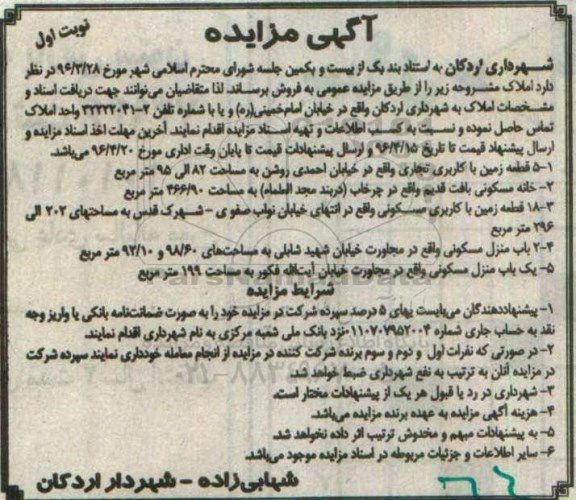 آگهی مزایده
نوبت اول
شهرداری اردکان به استناد بند یک از بیست و یکمین جلسه شورای محترم اسلامی شهر مورخ ۹۶/۳/۲۸ در نظر
دارد املاک مشروحه زیر را از طریق مزایده عمومی به فروش برساند. لذا متقاضیان می‌توانند جهت دریافت اسناد و
مشخصات املاک به شهرداری اردکان واقع در خیابان امام‌خمینی(ره) و یا با شماره تلفن ۲-۳۲۲۲۲۰۳۱ واحد املاک
تماس حاصل نموده و نسبت به کسب اطلاعات و تهیه اسناد مزایده اقدام نمایند. آخرین مهلت اخذ اسناد مزایده و
ارسال پیشنهاد قیمت تا تاریخ ۹۶/۴/۱۵ و ارسال پیشنهادات قیمت تا پایان وقت اداری مورخ ۹۶/۴/۲۰ می‌باشد.
۱-۵ قطعه زمین با کاربری تجاری واقع در خیابان احمدی روشن به مساحت ۸۲ الی ۹۵ متر مربع
۲- خانه مسکونی بافت قدیم واقع در چرخاب (دربند مجد العلماء) به مساحت ۴۶۶/۹۰ متر مربع
۳-۱۸ قطعه زمین با کاربری مسکونی واقع در انتهای خیابان نواب صفوی - شهرک قدس به مساحتهای ۲۰۲ الی
۲۹۶ متر مربع
۴-۲ باب منزل مسکونی واقع در مجاورت خیابان شهید شابلی به مساحت‌های ۹۸/۶۰ و ۹۲/۱۰ متر مربع
۵- یک باب منزل مسکونی واقع در مجاورت خیابان آیت‌الله فکور به مساحت ۱۹۹ متر مربع
شرایط مزایده
۱- پیشنهاددهندگان می‌بایست بهای ۵ درصد سپرده شرکت در مزایده خود را به صورت ضمانت‌نامه بانکی یا واریز وجه
نقد به حساب جاری شماره ۰۱۱۰۷۰۷۹۵۲۰۰۴ نزد بانک ملی شعبه مرکزی به نام شهرداری اقدام نمایند.
۲- در صورتی که نفرات اول و دوم و سوم برنده شرکت کننده در مزایده از انجام معامله خودداری نمایند سپرده شرکت
در مزایده آنان به ترتیب به نفع شهرداری ضبط خواهد شد.
۳- شهرداری در رد یا قبول هر یک از پیشنهادات مختار است.
۴- هزینه آگهی مزایده به عهده برنده مزایده می‌باشد.
۵- به پیشنهادات مبهم و مخدوش ترتیب اثر داده نخواهد شد.
۶- سایر اطلاعات و جزئیات مربوطه در اسناد مزایده موجود می‌باشد.
شهابی‌زاده - شهردار اردکان